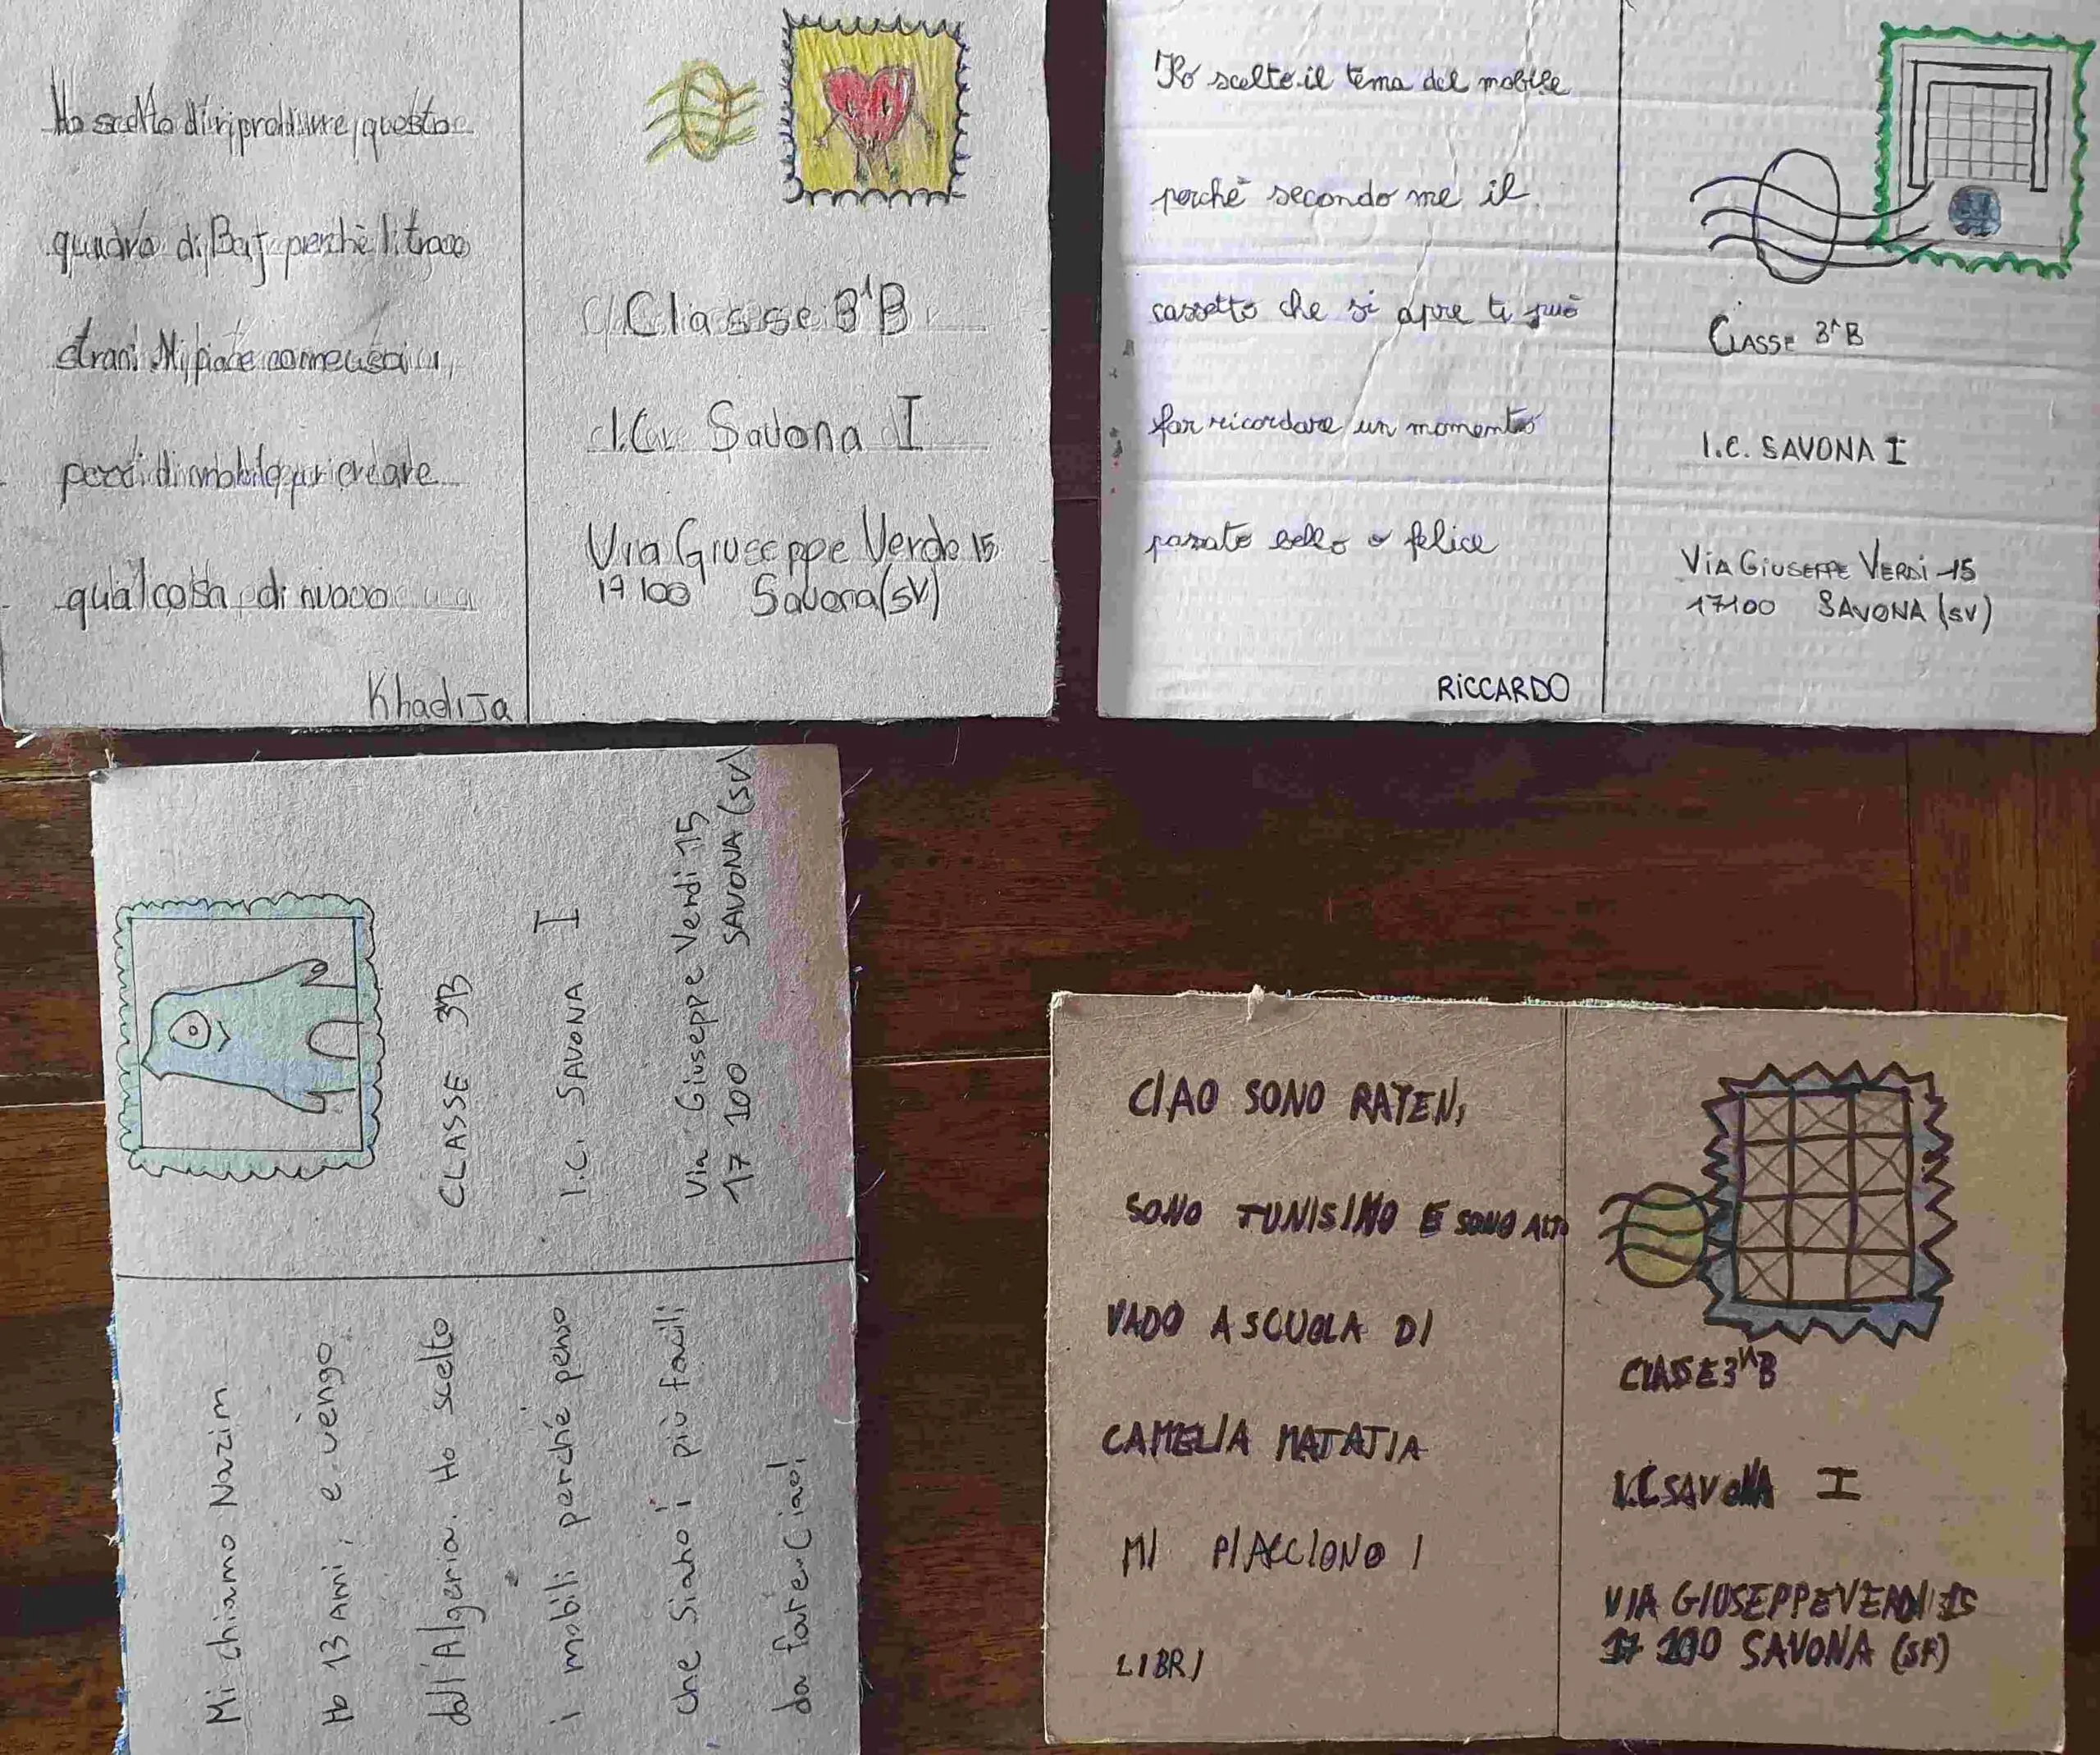 Ho scelto di riprodurre questo
quadro di Baj perchè li trovo
strani. Mi piace come usai
pezzi di mobile per creare
qualcosa di nuovo
Khadija
Classe 3^B
I.C. Savona I
Via Giuseppe Verde 15
17100 Savona (SV)
Ho scelto il tema del mobile
perchè secondo me il
cassetto che si apre ti può
far ricordare un momento
passato bello o felice
RICCARDO
CLASSE 3^B
I.C. SAVONA I
VIA GIUSEPPE VERDI 15
17100 SAVONA (SV)
Mi chiamo Nazim
Ho 13 anni, e vengo
dall'Algeria. Ho scelto
i mobili perché penso
che siano i più facili
da fare. Ciao!
CLASSE 3^B
I.C. SAVONA I
Via Giuseppe Verdi 15
17 100 SAVONA (SV)
CIAO SONO RAYEN,
SONO TUNISINO E SONO ALTO
VADO A SCUOLA DI
CAMELIA MATATIA
MI PIACCIONO I
LIBRI
CLASSE 3^B
I.C SAVONA I
VIA GIUSEPPE VERDI 15
17 100 SAVONA (SV)